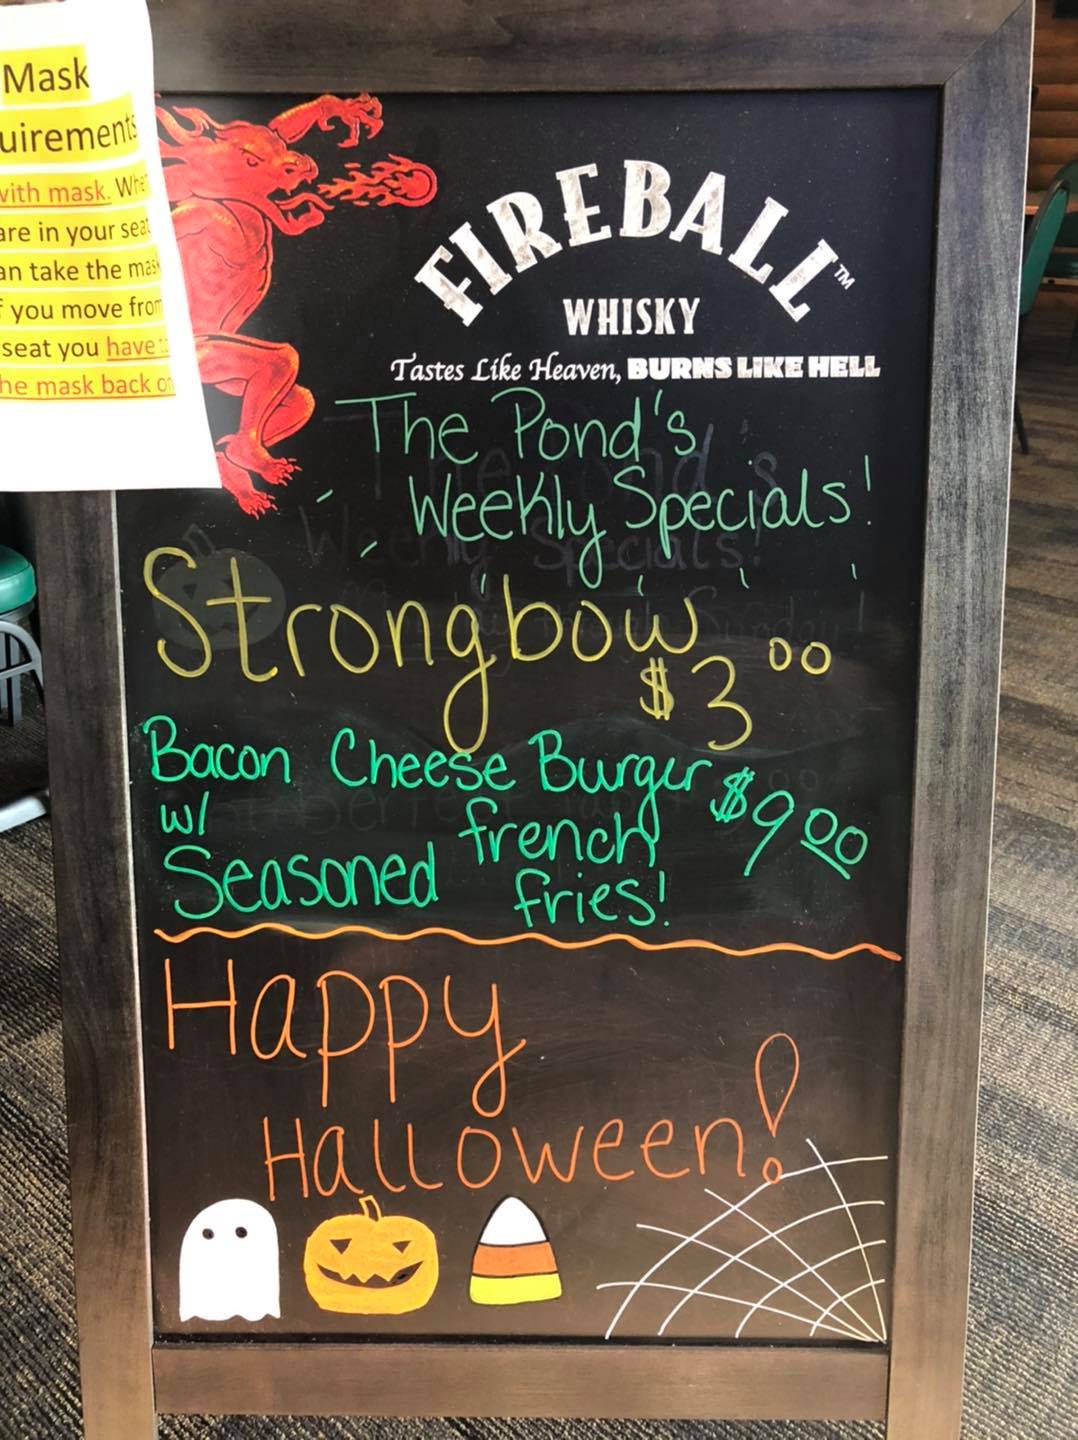 Mask
uirements
with mask. Whe
are in your seat
an take the mask
f you move from
seat you have
he mask back on
FIREBALL™
WHISKY
Tastes Like Heaven, BURNS LIKE HELL
The Pond's
Weekly Specials!
Strongbow
$3.00
Bacon Cheese Burger $9.00
w/
Seasoned french
fries!
Happy
Halloween!